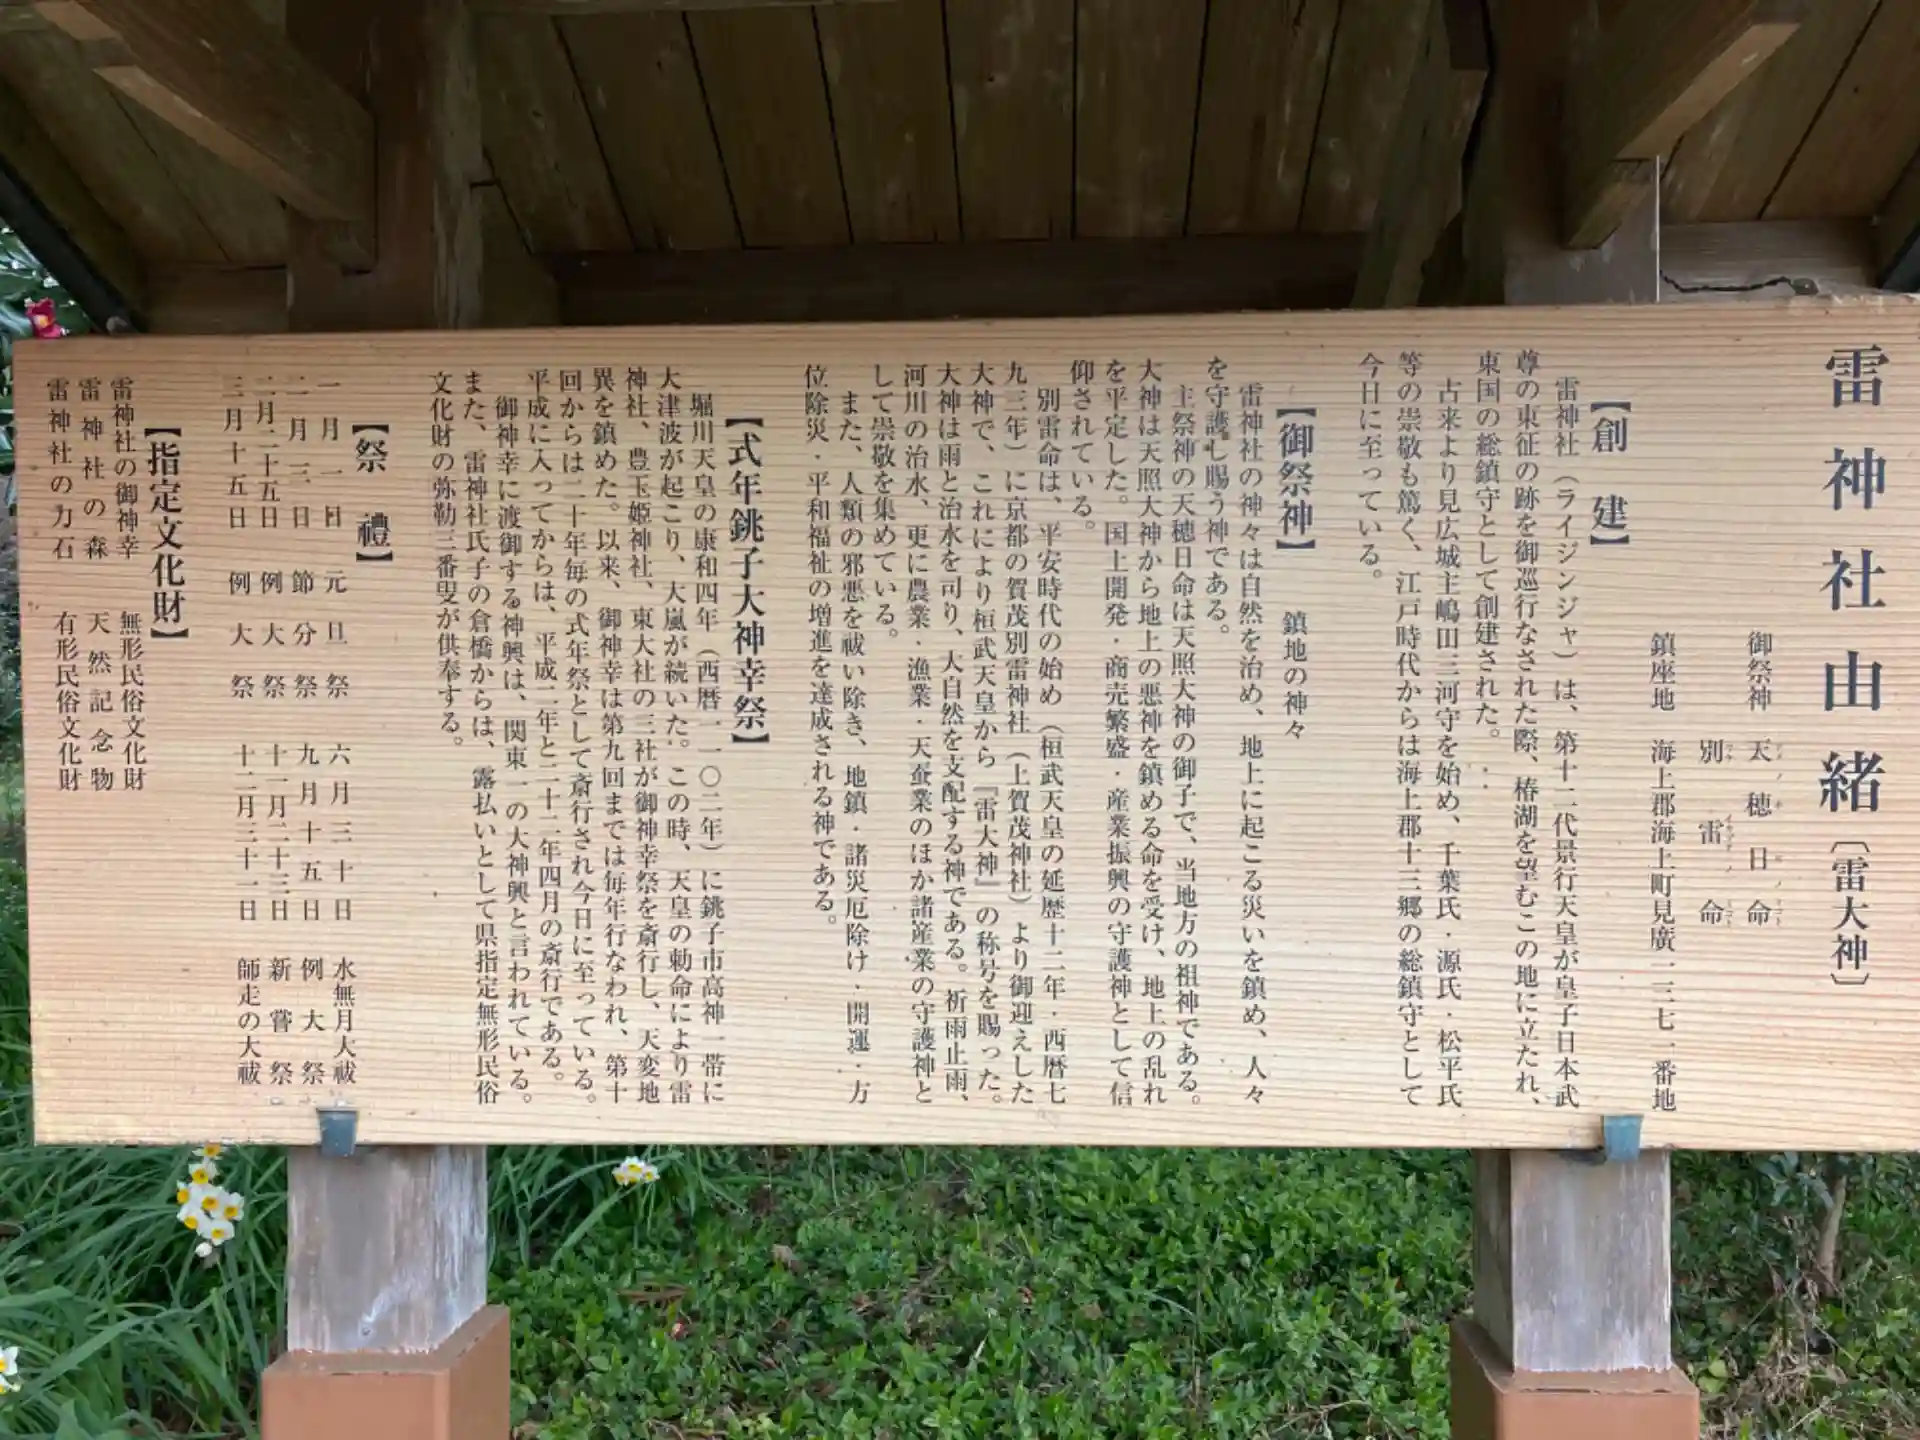 雷神社由緒〔雷大神〕
御祭神 天穂日命
別雷命
鎮座地 海上郡海上町見廣一三七一番地
【創 建】
雷神社（ライジンジャ）は、第十二代景行天皇が皇子日本武
尊の東征の跡を御巡行なされた際、椿湖を望むこの地に立たれ、
東国の総鎮守として創建された。
古来より見広城主嶋田三河守を始め、千葉氏・源氏・松平氏
等の崇敬も篤く、江戸時代からは海上郡十三郷の総鎮守として
今日に至っている。
【御祭神】 鎮地の神々
雷神社の神々は自然を治め、地上に起こる災いを鎮め、人々
を守護し賜う神である。
主祭神の天穂日命は天照大神の御子で、当地方の祖神である。
大神は天照大神から地上の悪神を鎮める命を受け、地上の乱れ
を平定した。国土開発・商売繁盛・産業振興の守護神として信
仰されている。
別雷命は、平安時代の始め（桓武天皇の延歴十二年・西暦七
九三年）に京都の賀茂別雷神社（上賀茂神社）より御迎えした
大神で、これにより桓武天皇から『雷大神』の称号を賜った。
大神は雨と治水を司り、大自然を支配する神である。祈雨止雨、
河川の治水、更に農業・漁業・天蚕業のほか諸産業の守護神と
して崇敬を集めている。
また、人類の邪悪を祓い除き、地鎮・諸災厄除け・開運・方
位除災・平和福祉の増進を達成される神である。
【式年銚子大神幸祭】
堀川天皇の康和四年（西暦一一〇二年）に銚子市高神一帯に
大津波が起こり、大嵐が続いた。この時、天皇の勅命により雷
神社、豊玉姫神社、東大社の三社が御神幸祭を斎行し、天変地
異を鎮めた。以来、御神幸は第九回までは毎年行なわれ、第十
回からは二十年毎の式年祭として斎行され今日に至っている。
平成に入ってからは、平成二年と二十二年四月の斎行である。
御神幸に渡御する神興は、関東一の大神興と言われている。
また、雷神社氏子の倉橋からは、露払いとして県指定無形民俗
文化財の弥勒三番叟が供奉する。
【祭 禮】
一月一日 元旦祭 六月三十日 水無月大祓
二月三日 節分祭 九月十五日 例大祭
二月二十五日 例大祭 十一月二十三日 新嘗祭
三月十五日 例大祭 十二月三十一日 師走の大祓
【指定文化財】
雷神社の御神幸 無形民俗文化財
雷神社の森 天然記念物
雷神社の力石 有形民俗文化財